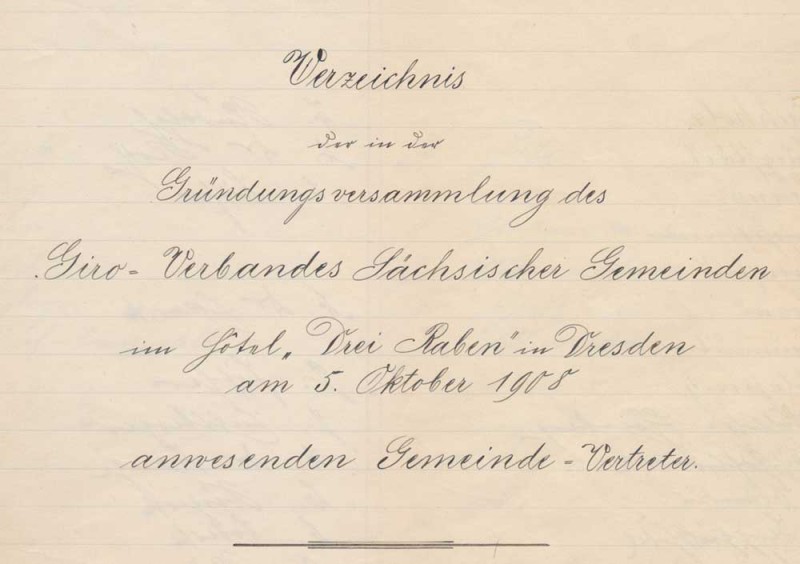 Verzeichnis
der in der
Gründungsversammlung des
Giro-Verbandes Sächsischer Gemeinden
im Hôtel „Drei Raben" in Dresden
am 5. Oktober 1908
anwesenden Gemeinde-Vertreter.